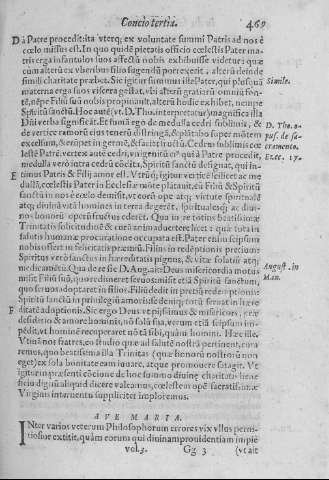 Concio tertia. 469
Dà Patre procedit ita vterq; ex voluntate summi Patris ad nos è
cœlo missus est. In quo quidẽ pietatis officio cœlestis Pater ma
tris erga infantulos suos affectũ nobis exhibuisse videtur: quæ
cùm alterũ ex vberibus filio sugendũ porrexerit, alterũ deinde
simili charitate præbet. Sic igitur summus ille Pater, qui plusquã
materna erga suos viscera gestat, vbi alterũ gratiarũ omniũ fon-
tẽ, nẽpe Filiũ suũ nobis propinauit, alterũ hodie exhibet, nempe
Spiritũ sanctũ. Hoc autẽ (vt D. Tho. interpretatur) magnifica illa
Dñi verba significãt. Et sumã ego de medulla cedri sublimis, &
de vertice ramorũ eius tenerũ distringã, & plãtabo super mõtem
excelsum, & erũpet in germẽ, & faciet fructũ. Cedrus sublimis cœ
lestẽ Patrẽ. vertex autẽ cedri, vnigenitũ eius qui à Patre procedit,
medulla verò intra cedrũ cõdita, Spiritũ sanctũ designat, qui in-
E timus Patris & Filij amor est. Vtrũq; igitur verticẽ scilicet ac me
dullã, cœlestis Pater in Ecclesiæ mõte plãtauit, cũ Filiũ & Spiritũ
sanctũ in nos è cœlo demisit, vt eorũ ope atq; virtute spiritualẽ
atq; diuinã vitã homines in terra degerẽt, spiritualesq; ac diui-
nos honorũ operũ fructus ederẽt. Qua in re totius beatissimæ
Trinitatis solicitudinẽ & curã animaduertere licet: quæ tota in
salutis humanæ procuratione occupata est. Pater enim seipsum
nobis offert in solicitatis præmiũ. Filius in redẽptionis precium:
Spiritus verò sanctus in hæreditatis pignus, & vitæ solatiũ atq;
medicamẽtũ. Qua de re sic D. Aug. ait: Deus misericordia motus
misit Filiũ suũ, quo redimeret seruos: misit etiã Spiritũ sanctum,
quo seruos adoptaret in filios. Filiũ dedit in preciũ redẽptionis:
Spiritũ sanctũ in priuilegiũ amoris: se deniq; totũ seruat in hære
F ditatẽ adoptionis. Sic ergo Deus vt pijssimus & misericors, præ
desiderio & amore hominis, nõ solũ sua, verum etiã seipsum im-
pẽdit, vt hominẽ recuperaret nõ tã sibi, quàm homini. Hæc ille.
Vtinã nos fratres, eo studio quæ ad salutẽ nostrã pertinent, cura
remus, quo beatissima illa Trinitas (quæ bonorũ nostrorũ non
eget) ex sola bonitate eam iuuare, atque promouere satagit. Vt
igitur in præsenti cõcione de hoc summo diuinæ charitatis bene
ficio dignũ aliquid dicere valeamus, cœlestem opẽ sacratissimæ
Virginis interuentu suppliciter imploremus.
Simile.
D. Tho. o-
pus. de sa-
cramento.
Ezec. 17.
August. in
Man.
AVE MARIA.
INter varios veterum Philosophorum errores vix vllus perni-
tiosior extitit, quàm eorum qui diuinam prouidentiam impiè
vol. 3. Gg 3 (vt ait